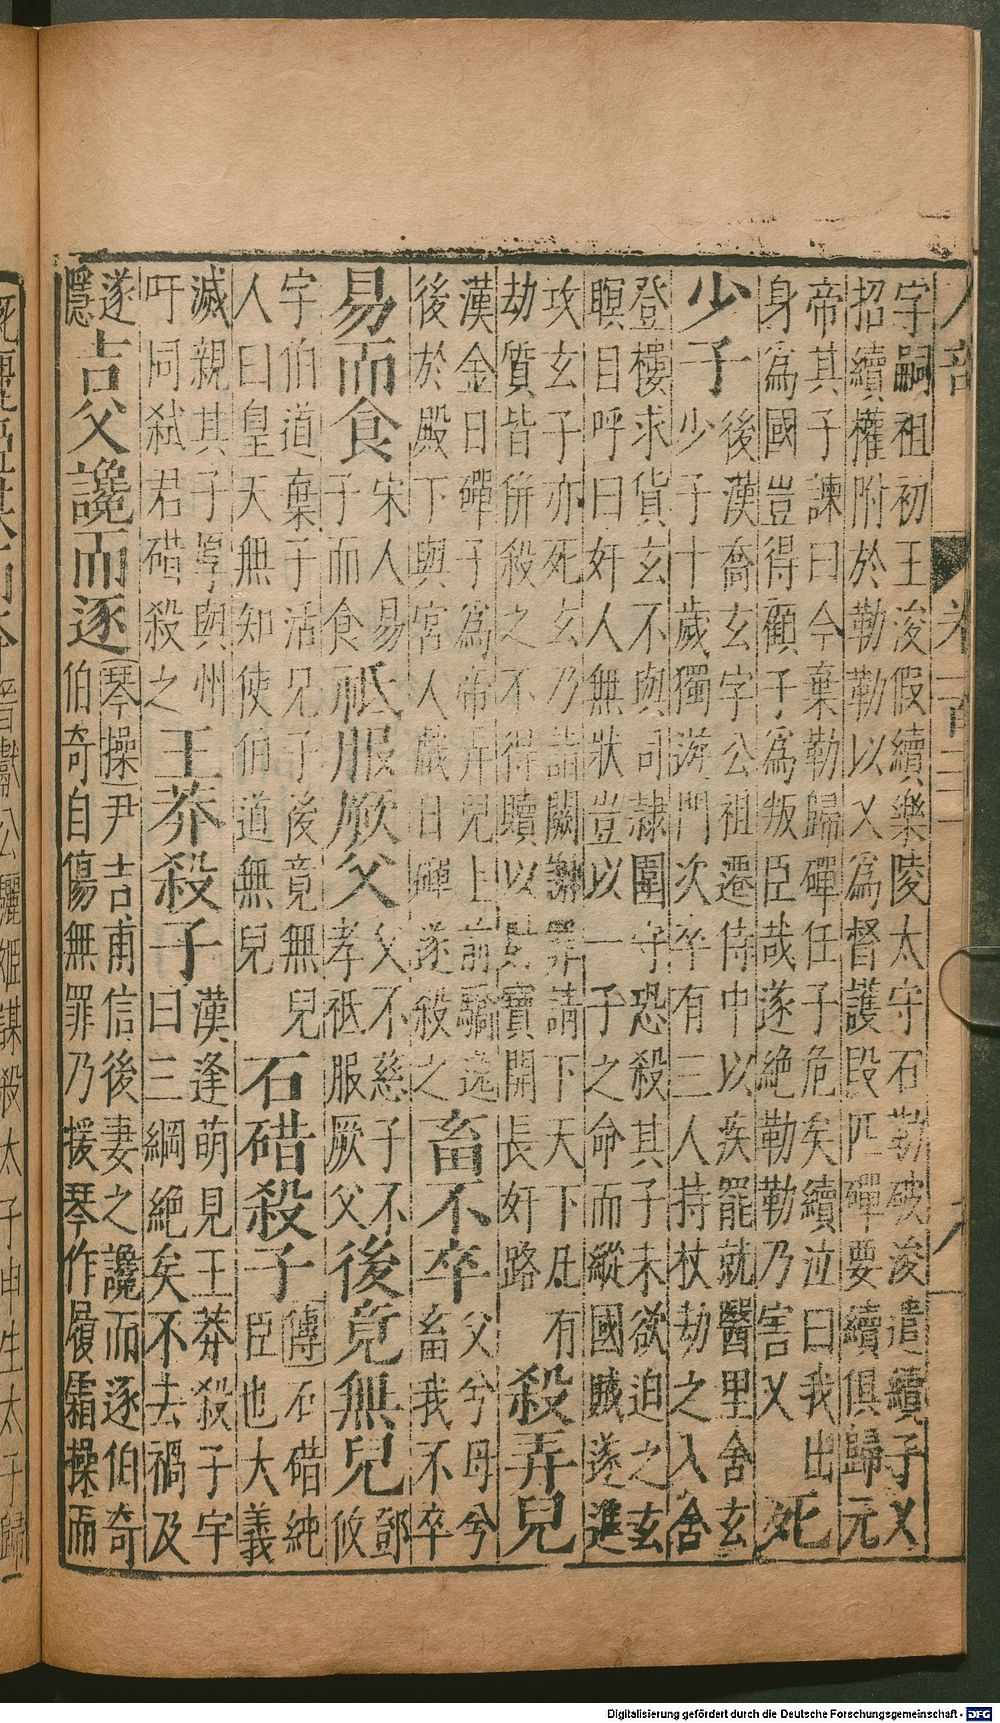 人部 卷一百二十
字嗣祖初王浚假續樂陵太守石勒破浚遣續子乂
招續權附於勒勒以乂為督護段匹磾要續俱歸元
帝其子諫曰今棄勒歸磾任子危矣續泣曰我出
身為國豈得顧子為叛臣哉遂絕勒勒乃害乂
死
少子
後漢喬玄字公祖遷侍中以疾罷就醫里舍玄
少子十歲獨游門次卒有三人持杖劫之入舍
登樓求貨玄不與司隸圍守恐殺其子未欲迫之玄
瞑目呼曰奸人無狀豈以一子之命而縱國賊遂進
攻玄子亦死玄乃詣闕謝罪請下天下凡有
劫質皆併殺之不得贖以財寶開長奸路
殺弄兒
漢金日磾子為帝弄兒上前驕逸
後於殿下與宮人戲日磾遂殺之
畜不卒
父兮母兮
畜我不卒
易而食
宋人易
子而食
祇服厥父
父不慈子不
孝祇服厥父
後竟無兒
鄧
攸
字伯道棄子活兄子後竟無兒
人曰皇天無知使伯道無兒
石碏殺子
傳石碏純
臣也大義
滅親其子厚與州
吁同弒君碏殺之
王莽殺子
漢逢萌見王莽殺子宇
曰三綱絕矣不去禍及
遂
隱
吉父讒而逐
琴操尹吉甫信後妻之讒而逐伯奇
伯奇自傷無罪乃援琴作履霜操而
晉獻公驪姬謀殺太子申生太子歸
Digitalisierung gefördert durch die Deutsche Forschungsgemeinschaft - DFG